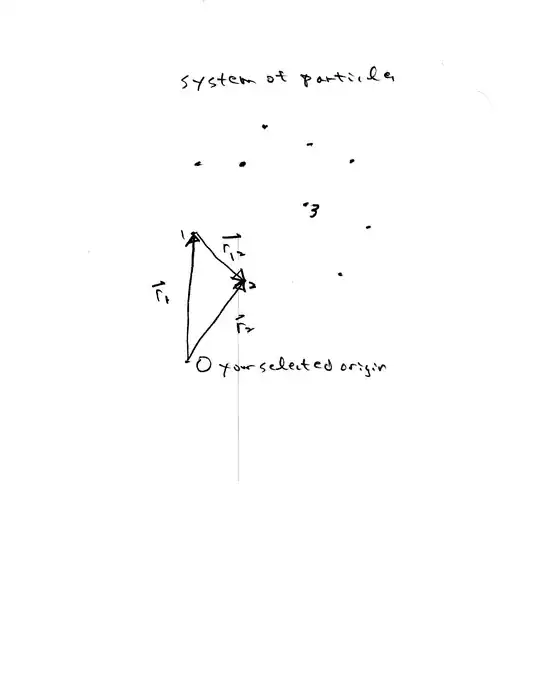 system of particles
3
1
r⃗₁₂
2
r⃗₁
r⃗₂
O your selected origin